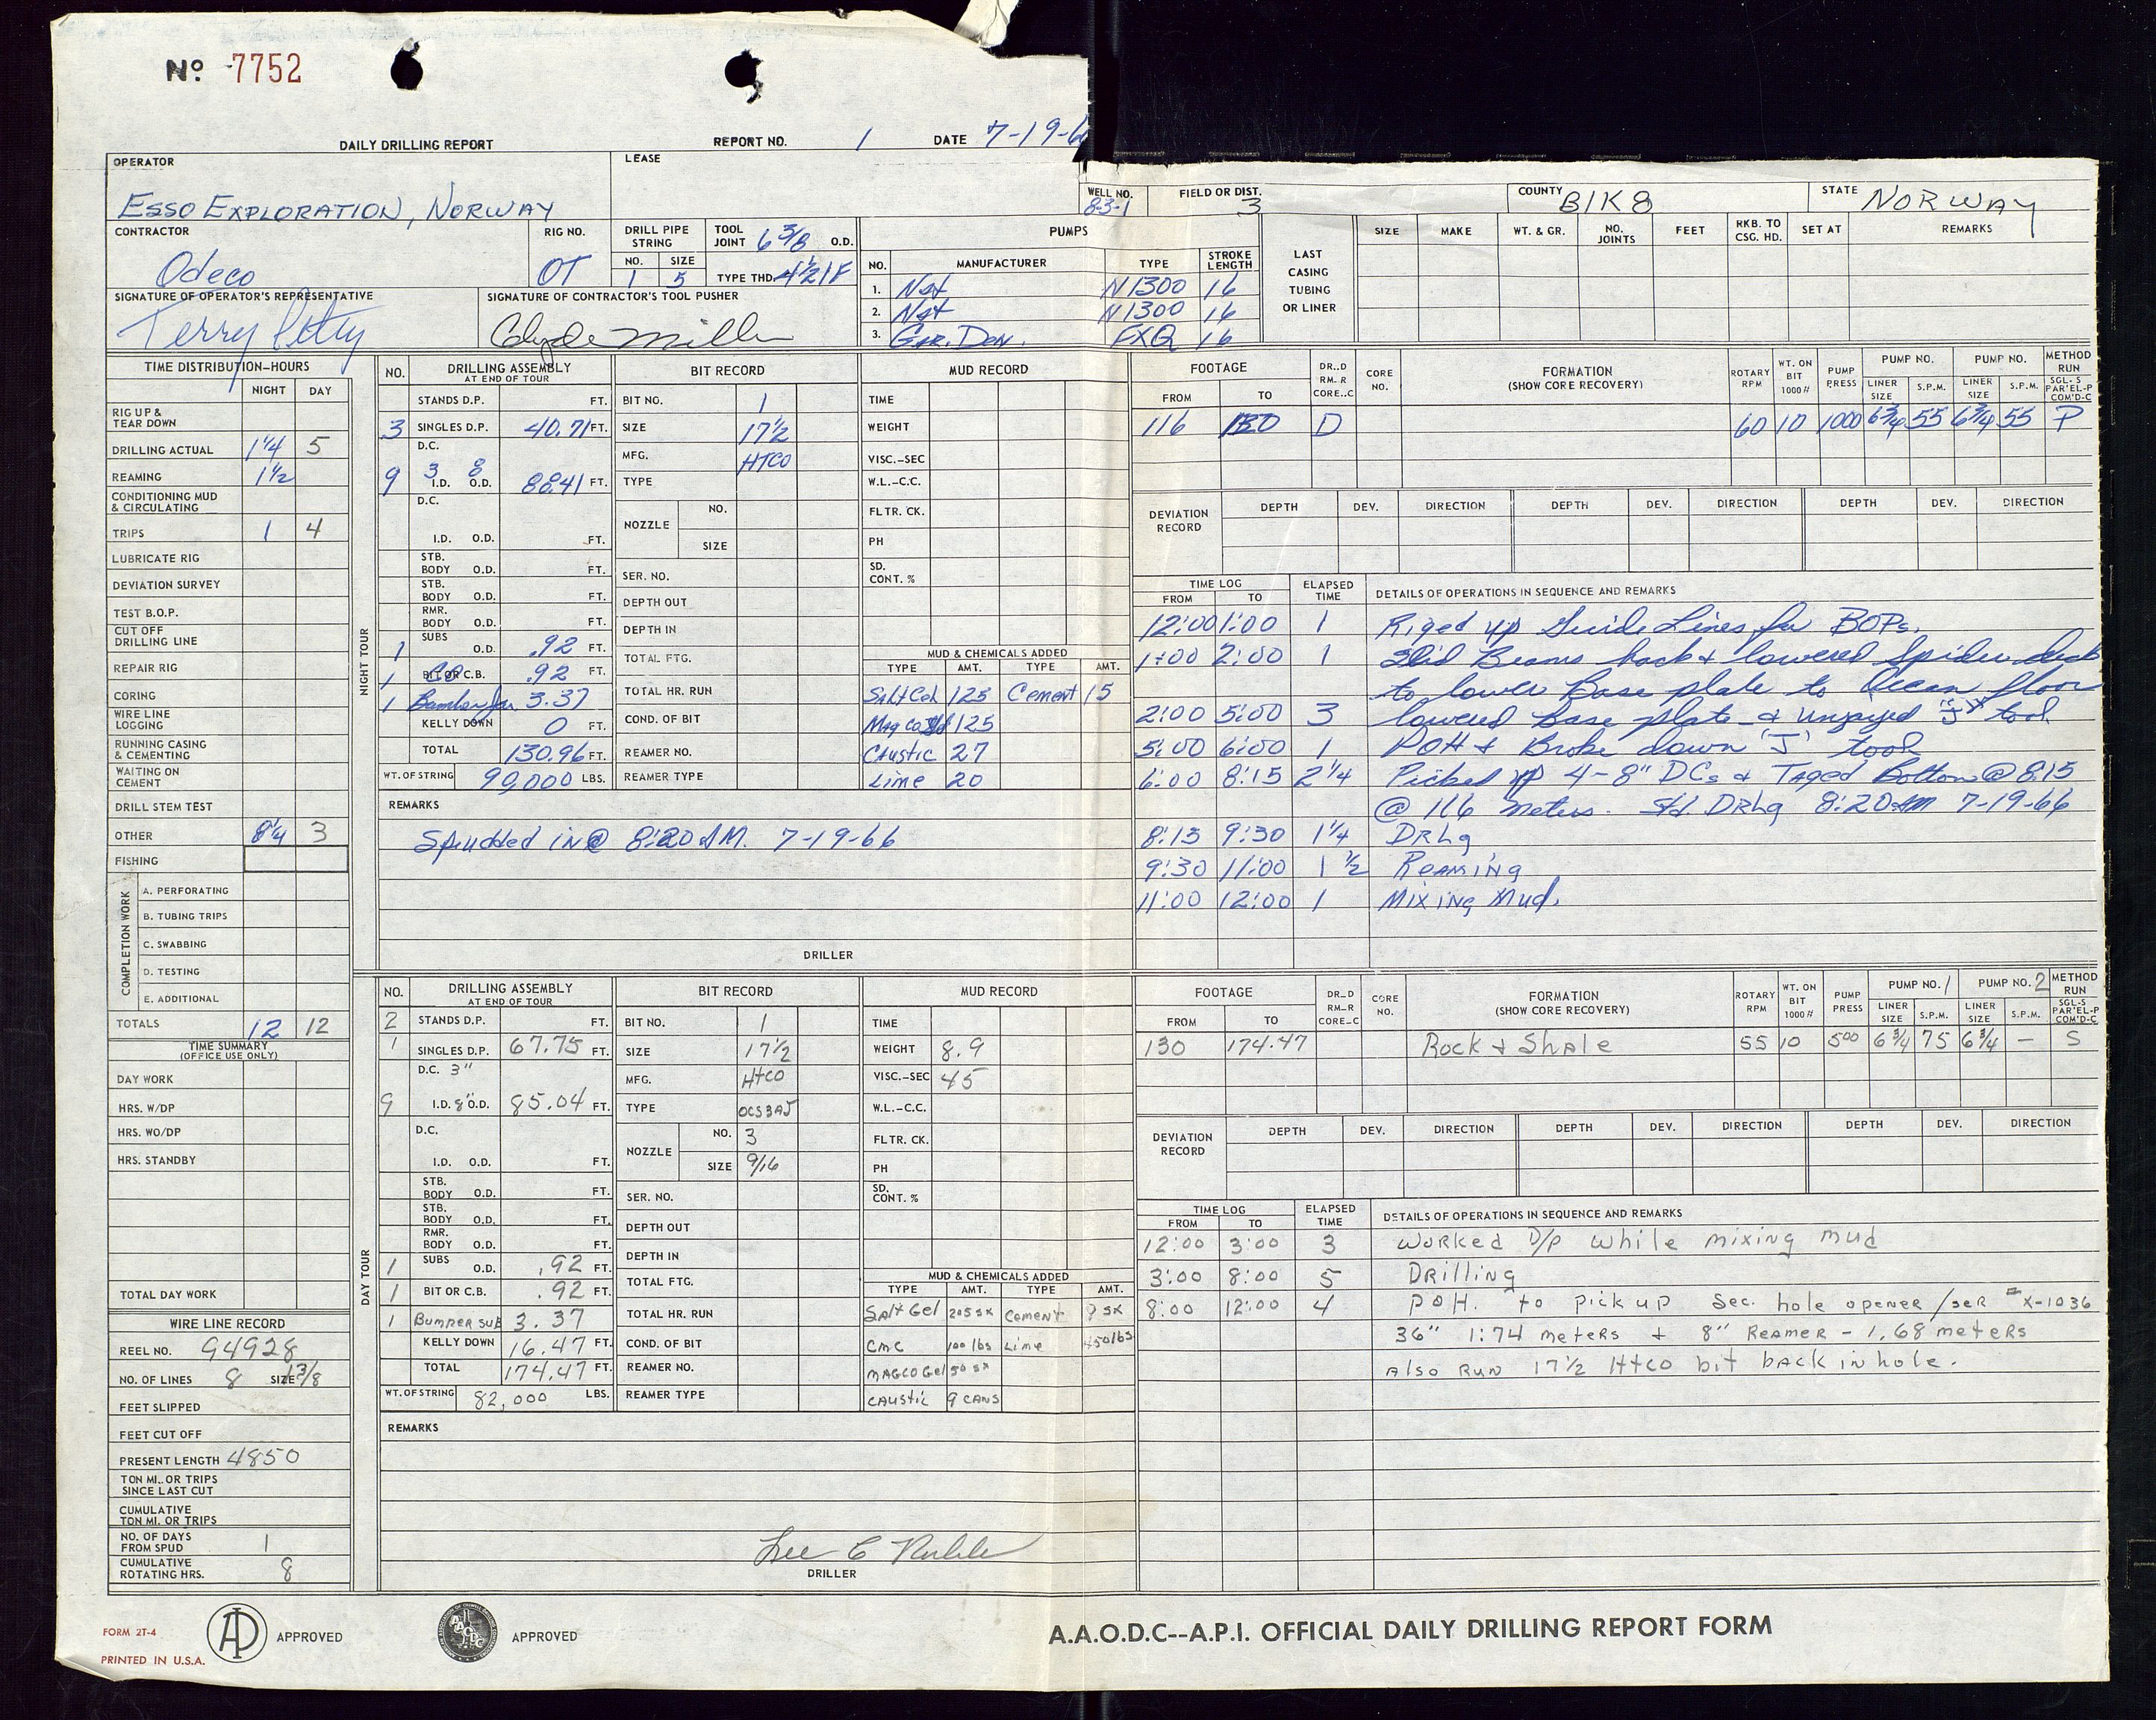 Nº 7752
DAILY DRILLING REPORT REPORT NO. 1 DATE 7-19-6
OPERATOR LEASE WELL NO. FIELD OR DIST. COUNTY STATE
ESSO EXPLORATION, NORWAY 8-3-1 3 BIK 8 NORWAY
CONTRACTOR RIG NO. DRILL PIPE STRING TOOL JOINT 6 3/8 O.D.
Odeco OT NO. 1 SIZE 5 TYPE THD. 4½ IF
SIGNATURE OF OPERATOR'S REPRESENTATIVE SIGNATURE OF CONTRACTOR'S TOOL PUSHER
Terry Petty Clyde Miller
PUMPS
NO. MANUFACTURER TYPE STROKE LENGTH
1. Nat N1300 16
2. Nat N1300 16
3. Gar. Den. FXQ 16
LAST CASING TUBING OR LINER
SIZE MAKE WT. & GR. NO. JOINTS FEET RKB. TO CSG. HD. SET AT REMARKS
TIME DISTRIBUTION-HOURS
NIGHT DAY
RIG UP & TEAR DOWN
DRILLING ACTUAL 1¼ 5
REAMING 1½
CONDITIONING MUD & CIRCULATING
TRIPS 1 4
LUBRICATE RIG
DEVIATION SURVEY
TEST B.O.P.
CUT OFF DRILLING LINE
REPAIR RIG
CORING
WIRE LINE LOGGING
RUNNING CASING & CEMENTING
WAITING ON CEMENT
DRILL STEM TEST
OTHER 8¼ 3
FISHING
COMPLETION WORK
A. PERFORATING
B. TUBING TRIPS
C. SWABBING
D. TESTING
E. ADDITIONAL
TOTALS 12 12
TIME SUMMARY
(OFFICE USE ONLY)
DAY WORK
HRS. W/DP
HRS. WO/DP
HRS. STANDBY
TOTAL DAY WORK
WIRE LINE RECORD
REEL NO. 94928
NO. OF LINES 8 SIZE 1 3/8
FEET SLIPPED
FEET CUT OFF
PRESENT LENGTH 4850
TON MI. OR TRIPS SINCE LAST CUT
CUMULATIVE TON MI. OR TRIPS
NO. OF DAYS FROM SPUD 1
CUMULATIVE ROTATING HRS. 8
NIGHT TOUR
NO. DRILLING ASSEMBLY AT END OF TOUR
STANDS D.P. FT.
3 SINGLES D.P. 40.71 FT.
D.C.
9 3 I.D. 8 O.D. 88.41 FT.
D.C.
I.D. O.D. FT.
STB. BODY O.D. FT.
STB. BODY O.D. FT.
RMR. BODY O.D. FT.
1 SUBS O.D. .92
1 BIT OR C.B. .92 FT.
1 3.37
KELLY DOWN 0 FT.
TOTAL 130.96 FT.
WT. OF STRING 90,000 LBS.
BIT RECORD
BIT NO. 1
SIZE 17½
MFG. HTCO
TYPE
NOZZLE NO.
SIZE
SER. NO.
DEPTH OUT
DEPTH IN
TOTAL FTG.
TOTAL HR. RUN
COND. OF BIT
REAMER NO.
REAMER TYPE
MUD RECORD
TIME
WEIGHT
VISC.-SEC
W.L.-C.C.
FLTR. CK.
PH
SD. CONT. %
MUD & CHEMICALS ADDED
TYPE AMT. TYPE AMT.
Salt Gel 125 Cement 15
Magco Gel 125
Caustic 27
Lime 20
REMARKS
Spudded in @ 8:20 A.M. 7-19-66
DRILLER
FOOTAGE DR..D RM..R CORE..C CORE NO. FORMATION (SHOW CORE RECOVERY) ROTARY RPM WT. ON BIT 1000 # PUMP PRESS PUMP NO. PUMP NO. METHOD RUN
FROM TO LINER SIZE S.P.M. LINER SIZE S.P.M. SGL-S PAR'EL-P COM'D-C
116 130 D 60 10 1000 6¾ 55 6¾ 55 P
DEVIATION RECORD DEPTH DEV. DIRECTION DEPTH DEV. DIRECTION DEPTH DEV. DIRECTION
TIME LOG ELAPSED TIME DETAILS OF OPERATIONS IN SEQUENCE AND REMARKS
FROM TO
12:00 1:00 1 Riged up Guide Lines for BOPs.
1:00 2:00 1 Slid Beams back & lowered Spider deck
to lower Base plate to Ocean floor
2:00 5:00 3 lowered Base plate & unjayed "J" tool
5:00 6:00 1 POH & Broke down "J" tool
6:00 8:15 2¼ Picked up 4-8" DCs & Taged Bottom @ 8:15
@ 116 meters. Std. DRLg 8:20 AM 7-19-66
8:15 9:30 1¼ DRLg
9:30 11:00 1½ Reaming
11:00 12:00 1 Mixing Mud.
DAY TOUR
NO. DRILLING ASSEMBLY AT END OF TOUR
2 STANDS D.P. FT.
1 SINGLES D.P. 67.75 FT.
D.C. 3"
9 I.D. 8" O.D. 85.04 FT.
D.C.
I.D. O.D. FT.
STB. BODY O.D. FT.
STB. BODY O.D. FT.
RMR. BODY O.D. FT.
1 SUBS O.D. .92 FT.
1 BIT OR C.B. .92 FT.
1 Bumper sub 3.37
KELLY DOWN 16.47 FT.
TOTAL 174.47 FT.
WT. OF STRING 82,000 LBS.
BIT RECORD
BIT NO. 1
SIZE 17½
MFG. HTCO
TYPE OCS3AJ
NOZZLE NO. 3
SIZE 9/16
SER. NO.
DEPTH OUT
DEPTH IN
TOTAL FTG.
TOTAL HR. RUN
COND. OF BIT
REAMER NO.
REAMER TYPE
MUD RECORD
TIME
WEIGHT 8.9
VISC.-SEC 45
W.L.-C.C.
FLTR. CK.
PH
SD. CONT. %
MUD & CHEMICALS ADDED
TYPE AMT. TYPE AMT.
Salt Gel 205 sx Cement 9 sx
CMC 100 lbs Lime 450 lbs
MAGCO Gel 50 sx
CAUSTIC 9 CANS
REMARKS
DRILLER
FOOTAGE DR..D RM..R CORE..C CORE NO. FORMATION (SHOW CORE RECOVERY) ROTARY RPM WT. ON BIT 1000 # PUMP PRESS PUMP NO. 1 PUMP NO. 2 METHOD RUN
FROM TO LINER SIZE S.P.M. LINER SIZE S.P.M. SGL-S PAR'EL-P COM'D-C
130 174.47 Rock & Shale 55 10 500 6¾ 75 6¾ — S
DEVIATION RECORD DEPTH DEV. DIRECTION DEPTH DEV. DIRECTION DEPTH DEV. DIRECTION
TIME LOG ELAPSED TIME DETAILS OF OPERATIONS IN SEQUENCE AND REMARKS
FROM TO
12:00 3:00 3 Worked D/P while mixing mud
3:00 8:00 5 Drilling
8:00 12:00 4 P.O.H. to pick up Sec. hole opener / ser # X-1036
36" 1:74 meters + 8" Reamer - 1.68 meters
Also Run 17½ Htco bit back in hole.
FORM 2T-4
PRINTED IN U.S.A.
API APPROVED
AAODC APPROVED
A.A.O.D.C--A.P.I. OFFICIAL DAILY DRILLING REPORT FORM